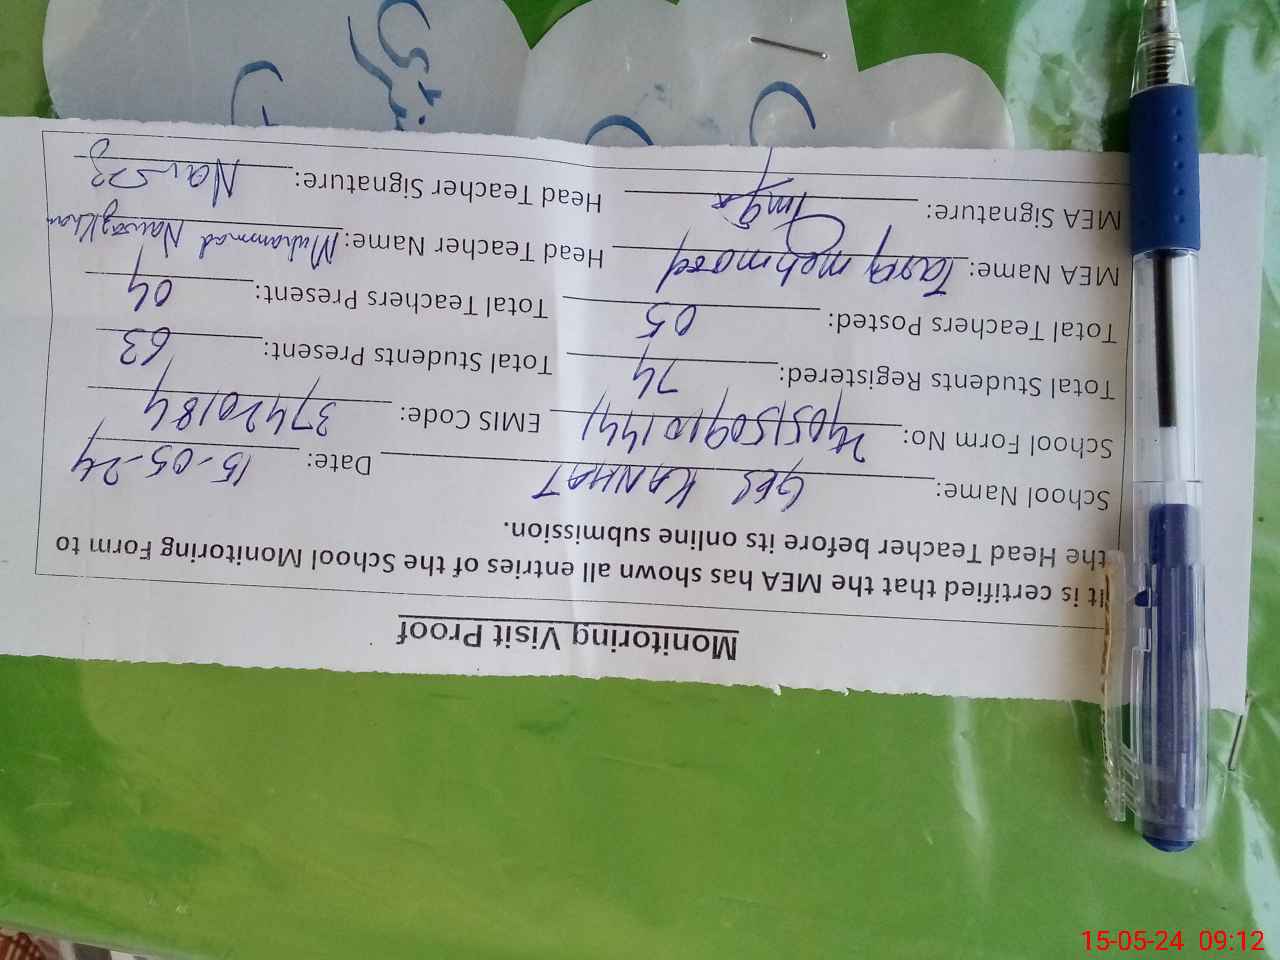 Monitoring Visit Proof
It is certified that the MEA has shown all entries of the School Monitoring Form to
the Head Teacher before its online submission.
School Name: GES KANHAT Date: 15-05-24
School Form No: EMIS Code: 37420184
Total Students Registered: 74 Total Students Present: 63
Total Teachers Posted: 05 Total Teachers Present: 04
MEA Name: Tariq mehmood Head Teacher Name: Muhammad Nawaz Khan
MEA Signature: Head Teacher Signature:
15-05-24 09:12